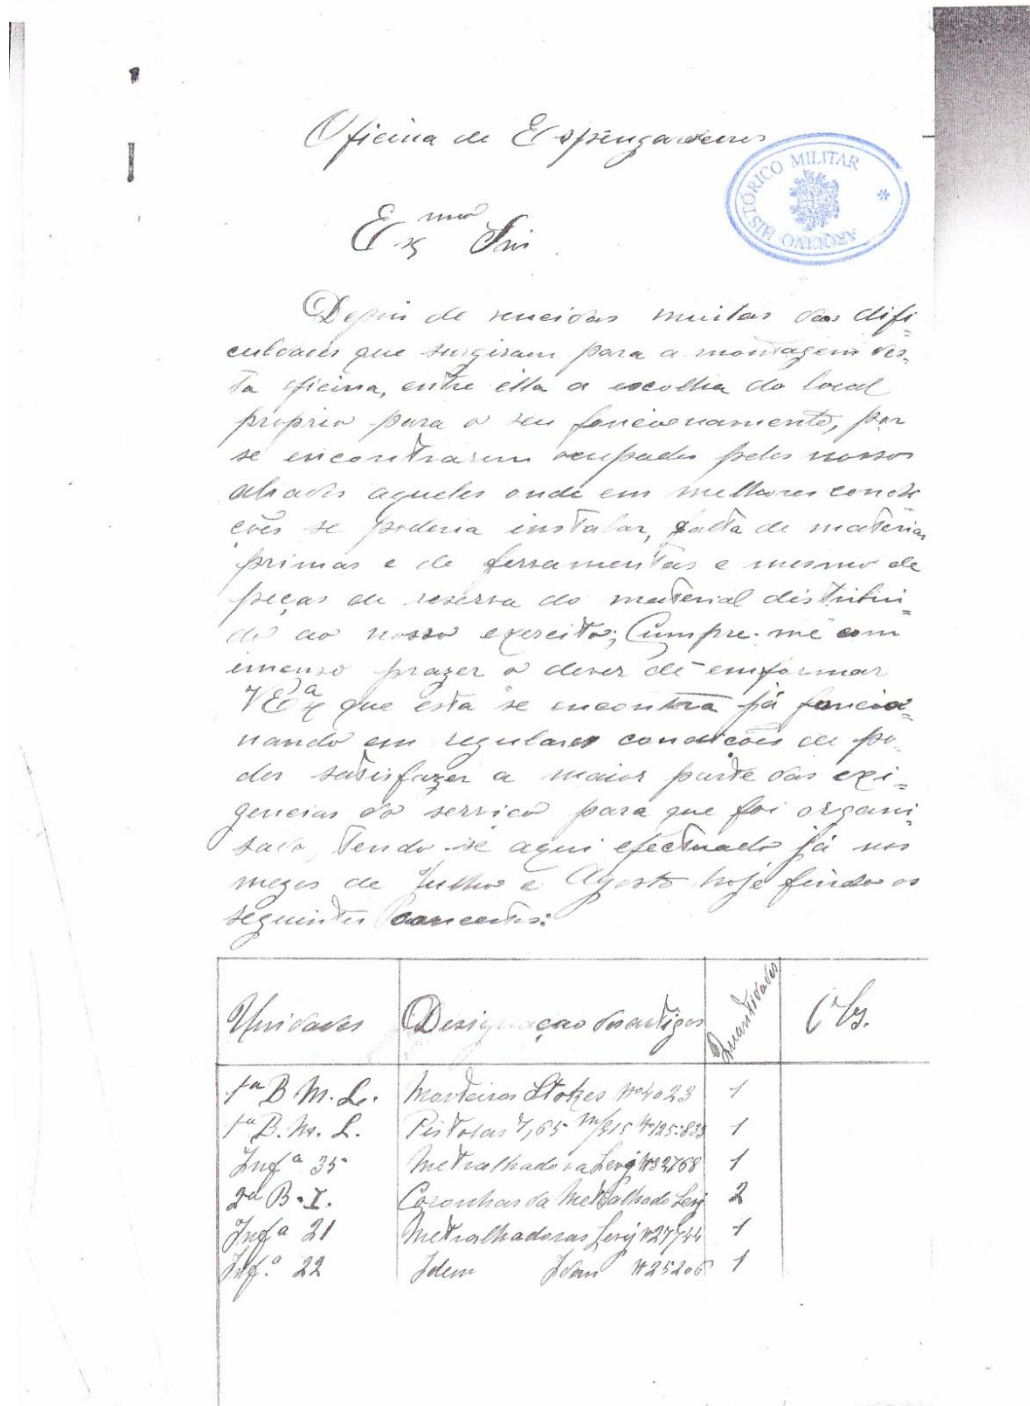 Oficina de Espingardeiros
ARQUIVO HISTÓRICO MILITAR
Exmo Snr
Depois de vencidas muitas das difi=
culdades que surgiram para a montagem des=
ta oficina, entre ella a escolha do local
proprio para o seu foncionamento, por
se encontrarem ocupados pelos nossos
aliados aqueles onde em melhores condi
ções se poderia instalar, falta de materias
primas e de ferramentas e mesmo de
peças de reserva do material distribui=
do ao nosso exercito; Cumpre-me com
imenso prazer o dever de emformar
V Exa que esta se encontra já foncio=
nando em regulares condições de po-
der satisfazer a maior parte das exi=
gencias do serviço para que foi organi=
sada, tendo-se aqui efectuado já nos
mezes de Julho e Agosto hoje findo os
seguintes concertos:
Unidades Designação dos artigos Quantidades Obs.
1ª B. M. L. Morteiros Stokes Nº 4023 1
1ª B. M. L. Pistolas 7,65 m/915 Nº 1
Infª 35 Metralhadora Levej Nº 32768 1
2ª B. I. Coronhas da Metralhado Levj 2
Infª 21 Metralhadoras Levej Nº 27744 1
Infª 22 Idem Idem Nº 25206 1